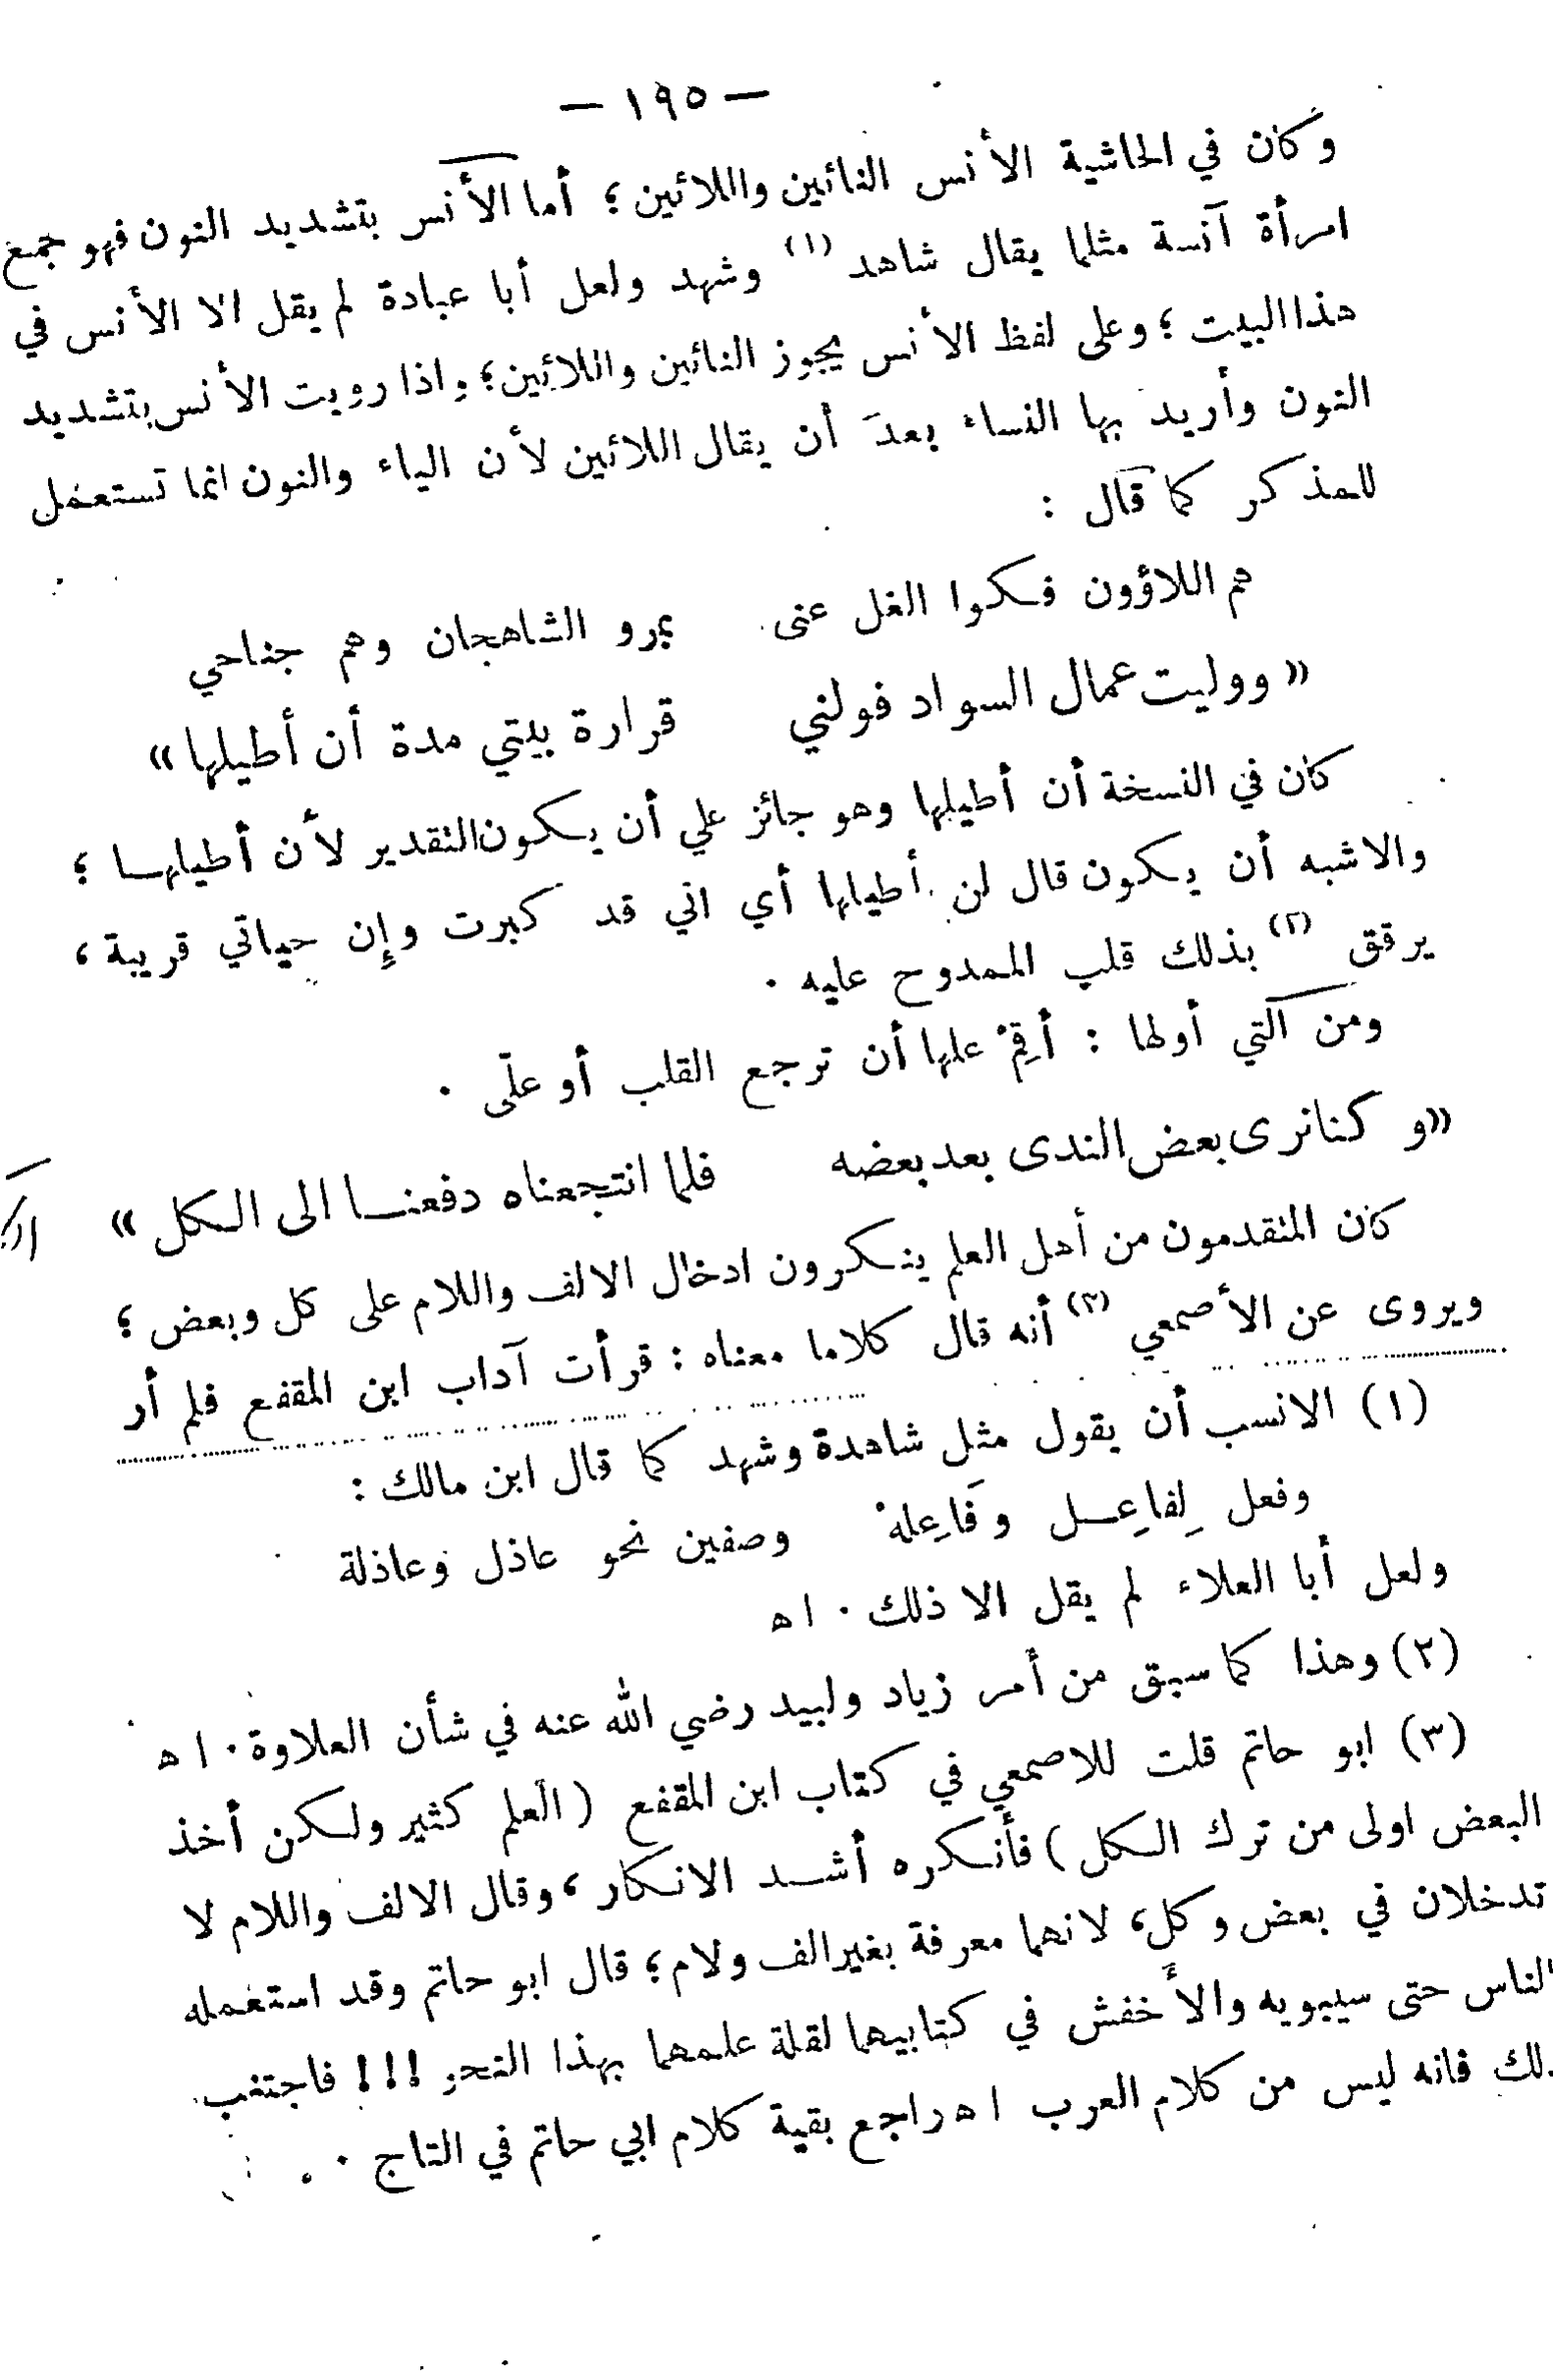 — ١٩٥ —
وكان في الحاشية الأنس النائين واللائين ؛ أما الأنس بتشديد النون فهو جمع
امرأة آنسة مثلما يقال شاهد (١) وشهد ولعل أبا عبادة لم يقل الا الأنس في
هذا البيت ؛ وعلى لفظ الأنس يجوز النائين واللائين ؛ واذا رويت الأنس بتشديد
النون وأريد بها النساء بعدَ أن يقال اللائين لأن الياء والنون انما تستعمل
للمذكر كما قال :
هم اللاؤون فكوا الغل عنى بمرو الشاهجان وهم جناحي
« ووليت عمال السواد فولني قرارة بيتي مدة أن أطيلها »
كان في النسخة أن أطيلها وهو جائز علي أن يكون التقدير لأن أطيلها ؛
والاشبه أن يكون قال لن أطيلها أي اني قد كبرت وإن حياتي قريبة ،
يرقق (٢) بذلك قلب الممدوح عليه ٠
ومن التي أولها : أقِمْ علها أن ترجع القلب أو علّى ٠
« وكنا نرى بعض الندى بعد بعضه فلما انتجعناه دفعنا الى الكل »
كان المتقدمون من أهل العلم ينكرون ادخال الالف واللام على كل وبعض ؛
ويروى عن الأصمعي (٣) أنه قال كلاما معناه : قرأت آداب ابن المقفع فلم أر
(١) الانسب أن يقول مثل شاهدة وشهد كما قال ابن مالك :
وفعل لِفاعِل وفَاعِلهْ وصفين نحو عاذل وعاذلة
ولعل أبا العلاء لم يقل الا ذلك ٠ ا ه
(٢) وهذا كما سبق من أمر زياد ولبيد رضي الله عنه في شأن العلاوة ٠ ا ه
(٣) ابو حاتم قلت للاصمعي في كتاب ابن المقفع ( العلم كثير ولكن أخذ
البعض اولى من ترك الكل ) فأنكره أشد الانكار ، وقال الالف واللام لا
تدخلان في بعض وكل ، لانهما معرفة بغير الف ولام ؛ قال ابو حاتم وقد استعمله
الناس حتى سيبويه والأخفش في كتابيهما لقلة علمهما بهذا النحو !!! فاجتنب
ذلك فانه ليس من كلام العرب ا ه راجع بقية كلام ابي حاتم في التاج ٠